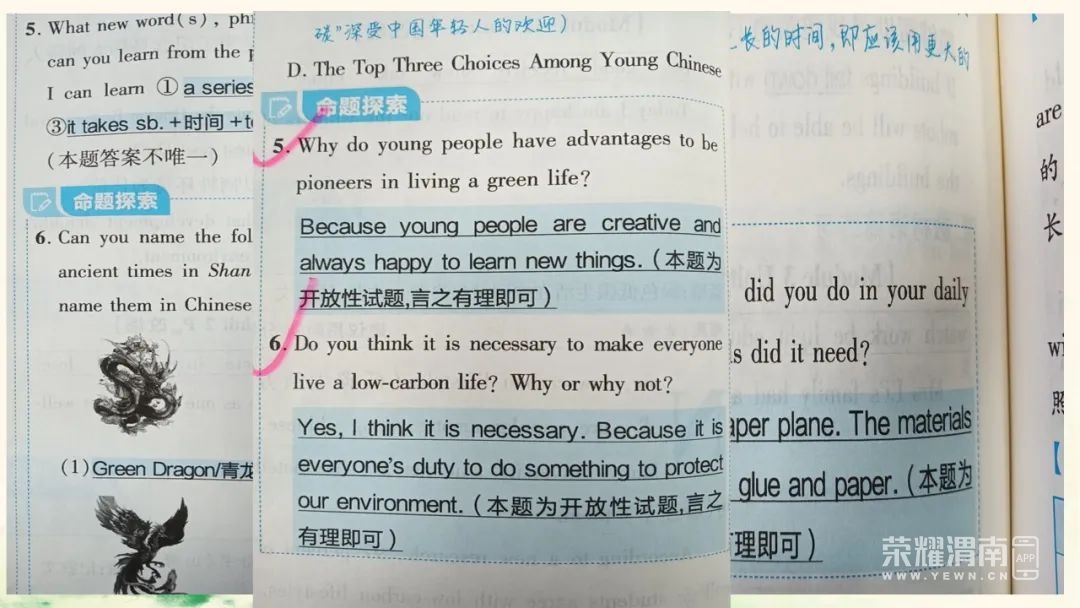 5. What new word(s),
can you learn from the
I can learn ① a series
③it takes sb. +时间 +
(本题答案不唯一)
命题探索
6. Can you name the
ancient times in Shan
name them in Chinese
(1) Green Dragon/青龙
碳”深受中国年轻人的欢迎)
D. The Top Three Choices Among Young Chinese
命题探索
5. Why do young people have advantages to be
pioneers in living a green life?
Because young people are creative and
always happy to learn new things. (本题为
开放性试题,言之有理即可)
6. Do you think it is necessary to make everyone
live a low-carbon life? Why or why not?
Yes, I think it is necessary. Because it is
everyone's duty to do something to protect
our environment. (本题为开放性试题,言之
有理即可)
长的时间,即应该用更大的
did you do in your daily
did it need?
paper plane. The materials
glue and paper. (本题为
理即可)
are
的
长
照
荣耀渭南 APP
WWW.YEWN.CN